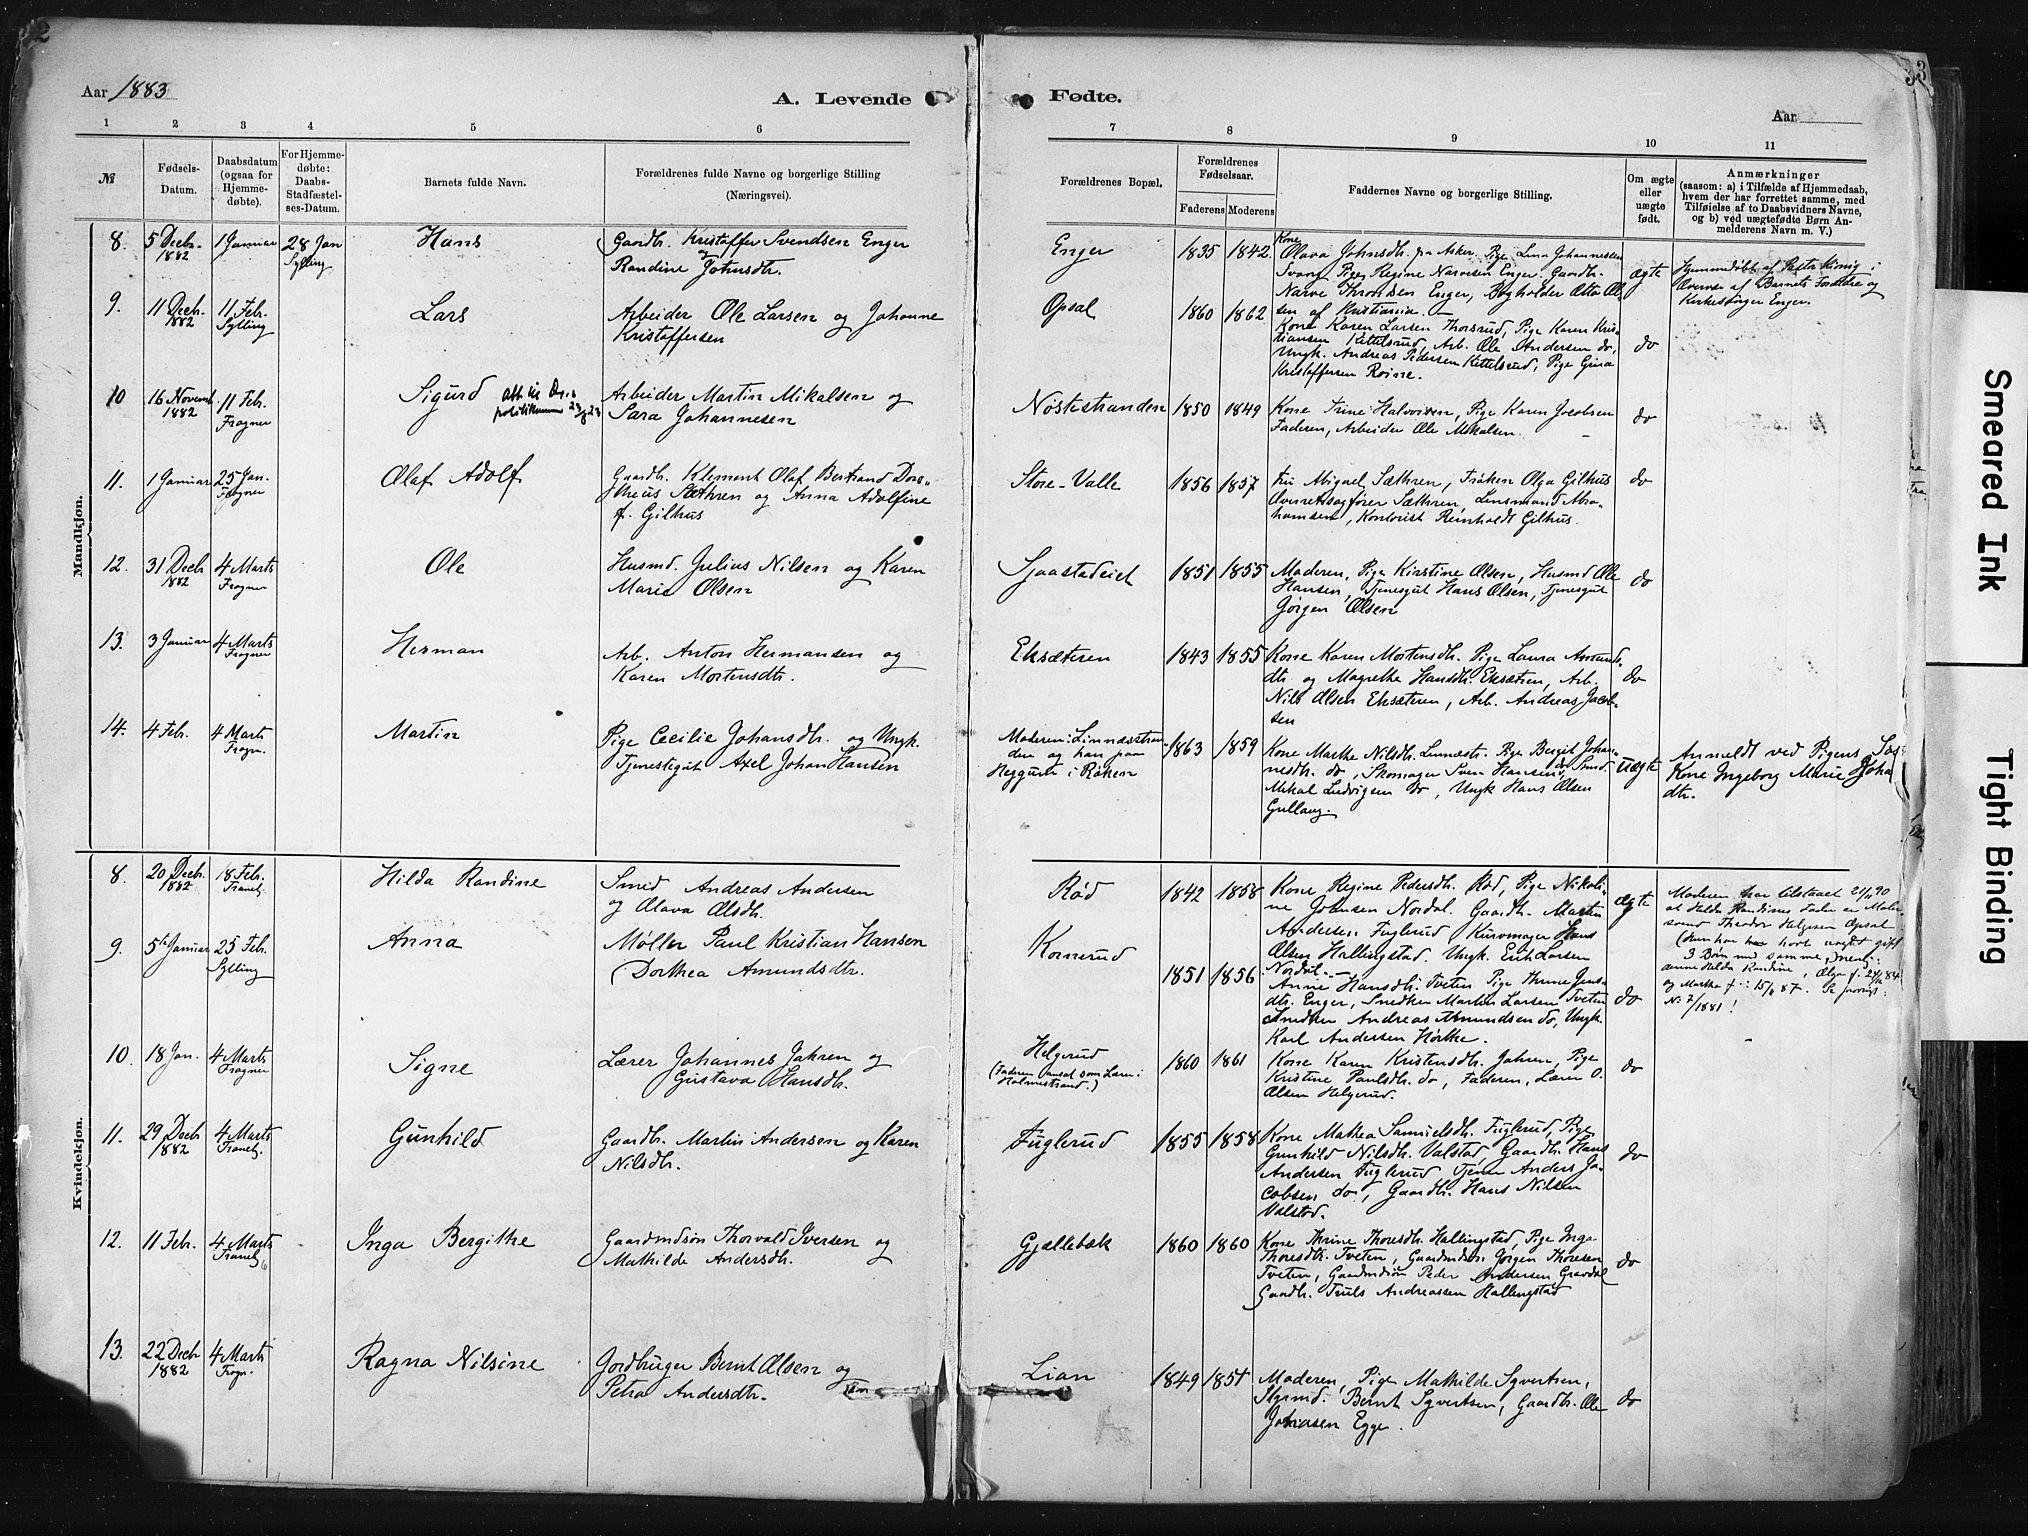 2
33
Aar 1883
A. Levende
Fødte.
Aar
1 2 3 4 5 6 7 8 9 10 11
№
Fødsels-
Datum.
Daabsdatum
(ogsaa for
Hjemme-
døbte).
For Hjemme-
døbte:
Daabs-
Stadfæstel-
ses-Datum.
Barnets fulde Navn.
Forældrenes fulde Navne og borgerlige Stilling
(Næringsvei).
Forældrenes Bopæl.
Forældrenes
Fødselsaar.
Faderens Moderens
Faddernes Navne og borgerlige Stilling.
Om ægte
eller
uægte
født.
Anmærkninger
(saasom: a) i Tilfælde af Hjemmedaab,
hvem der har forrettet samme, med
Tilføielse af to Daabsvidners Navne,
og b) ved uægtefødte Børn An-
melderens Navn m. V.)
Mandkjøn.
8. 5 Decb. 1882
1 Januar
28 Jan
Sylling
Hans
Gaardb. Kristoffer Svendsen Enger
og
Randine Johnsdtr.
Enger
1835 1842
Kone
Olava Johnsdtr. fra Asker. Pige Lina Johannessen
Svang, Pige Regine Narvesen Enger. Gaardb.
Narve Throndsen Enger, Bogholder Otto Ol
sen af Kristiania.
ægte
Hjemmedøbt af Pastor König i
Overvær af Barnets Forældre og
Kirkesanger Enger.
9. 11 Decb. 1882
11 Feb.
Sylling
Lars
Arbeider Ole Larsen og Johanne
Kristoffersen
Opsal
1860 1862
Kone Karen Larsen Thorsrud, Pige Karen Kris-
tiansen Kittelsrud, Arb. Ole Andersen do,
Ungk. Andreas Pedersen Kittelsrud, Pige Gina
Kristoffersen Roine.
do
10 16 Novemb 1882
11 Feb.
Frogner
Sigurd
Arbeider Martin Mikalsen og
Sara Johannesen
Nøstestranden
1850 1849
Kone Trine Halvorsen, Pige Karen Jacobsen
Faderen, Arbeider Ole Mikalsen.
do
11. 1 Januar
25 Jan.
Frogner
Olaf Adolf
Gaardb. Klement Olaf Bertrand Doro-
theus Sæthren og Anna Adolfine
f. Gilhus
Store-Valle
1856 1857
Fru Abigael Sæthren, Frøken Olga Gilhus
Overretssagfører Sæthren, Lensmand Abra-
hamsen, Kontorist Reinholdt Gilhus.
do
12. 31 Decb 1882
4 Marts
Frogner
Ole
Husmd. Julius Nilsen og Karen
Marie Olsen
Sjaastadeiet
1851 1855
Moderen, Pige Kirstine Olsen, Husmd Ole
Hansen, Tjenesgut Hans Olsen, Tjenesgut
Jørgen Olsen
do
13. 3 Januar
4 Marts
Frogner
Herman
Arb. Anton Hermansen og
Karen Mortensdtr.
Eksæteren
1843 1855
Kone Karen Mortensdtr. Pige Laura Amunds
dtr og Magrethe Hansdtr. Eksætren, Arb.
Nils Olsen Eksæteren, Arb. Andreas Jacob-
sen
do
14. 4 Feb.
4 Marts
Frogn.
Martin
Pige Cecilie Johansdtr. og Ungk.
Tjenestegut Axel Johan Hansen
Moderen: Linnesstran
den og han paa
Heggum i Røken
1863 1859
Kone Marthe Nilsdtr. Linnest. Pige Bergit Johan-
nesdtr. do, Skomager Sven Hansen do, Smd.
Mikal Ludvigsen do, Ungk Hans Olsen
Gullaug.
uægte
Anmeldt ved Pigens
Kone Ingeborg Marie Joha
dtr.
Kvindekjøn.
8. 20 Decb. 1882
18 Feb.
Traneb.
Hilda Randine
Smed Andreas Andersen
og Olava Olsdtr.
Rød
1842 1858
Kone Regine Pedersdtr. Rød, Pige Nikoli-
ne Johnsen Nordal. Gaardb. Martin
Andersen Fuglerud, Kurvmager Hans
Olsen Hallingstad. Ungk. Erik Larsen
Nordal.
ægte
Moderen har tilstaaet 21/11 90
at Hilda Randines Fader er Møller-
svend Theodor Helgesen Opsal
3 Børn med samme, nemlig:
Anne Hilda Randine, Olga f.
og Marthe f.: 15/1 87.
№ 7/1881!
9. 5te Januar
25 Feb.
Sylling
Anna
Møller Paul Kristian Hansen
Dorthea Amundsdtr.
Kornerud
1851 1856
Anne Hansdtr. Tveten Pige Thrine Jens-
dtr. Enger, Snedker Martin Larsen Tveten
Snedker Andreas Amundsen do, Ungk.
Karl Andersen Hørthe.
do
10. 18 Jan.
4 Marts
Frogner
Signe
Lærer Johannes Jahren og
Gustava Hansdtr.
Helgerud
(Faderen ansat som Lærer i
Holmestrand.)
1860 1861
Kone Karen Kristensdtr. Jahren, Pige
Kristine Paulsdtr. do, Faderen, Lærer O.
Olsen Helgerud.
do
11. 29 Decb 1882
4 Marts
Traneb.
Gunhild
Gaardb. Martin Andersen og Karen
Nilsdtr.
Fuglerud
1855 1858
Kone Mathea Samuelsdtr. Fuglerud, Pige
Gunhild Nilsdtr. Valstad, Gaardb. Hans
Andersen Fuglerud Tjener Anders Ja-
cobsen do, Gaardb. Hans Nilsen
Valstad.
do
12. 11 Feb.
4 Marts
Traneb
Inga Bergithe
Gaardmdsøn Thorvald Iversen og
Mathilde Andersdtr.
Gjellebæk
1860 1860
Kone Thrine Thoresdtr. Hallingstad, Pige Inga
Thoresdtr. Tveten, Gaardmdsøn Jørgen Thoresen
Tveten, Gaardmdsøn Peder Andersen Gravdal
Gaardb. Truls Andreassen Hallingstad
do
13. 22 Decb 1882
4 Marts
Frogn.
Ragna Nilsine
Jordbruger Bernt Olsen og
Petra Andersdtr.
Lian
1849 1851
Moderen, Pige Mathilde Syvertsen,
Styrmd. Bernt Syvertsen, Gaardb. Ole
Johansen Egge.
do
Smeared Ink
Tight Binding